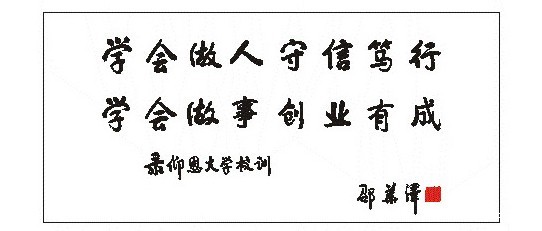 学会做人守信笃行
学会做事创业有成
录仰恩大学校训
邵华泽